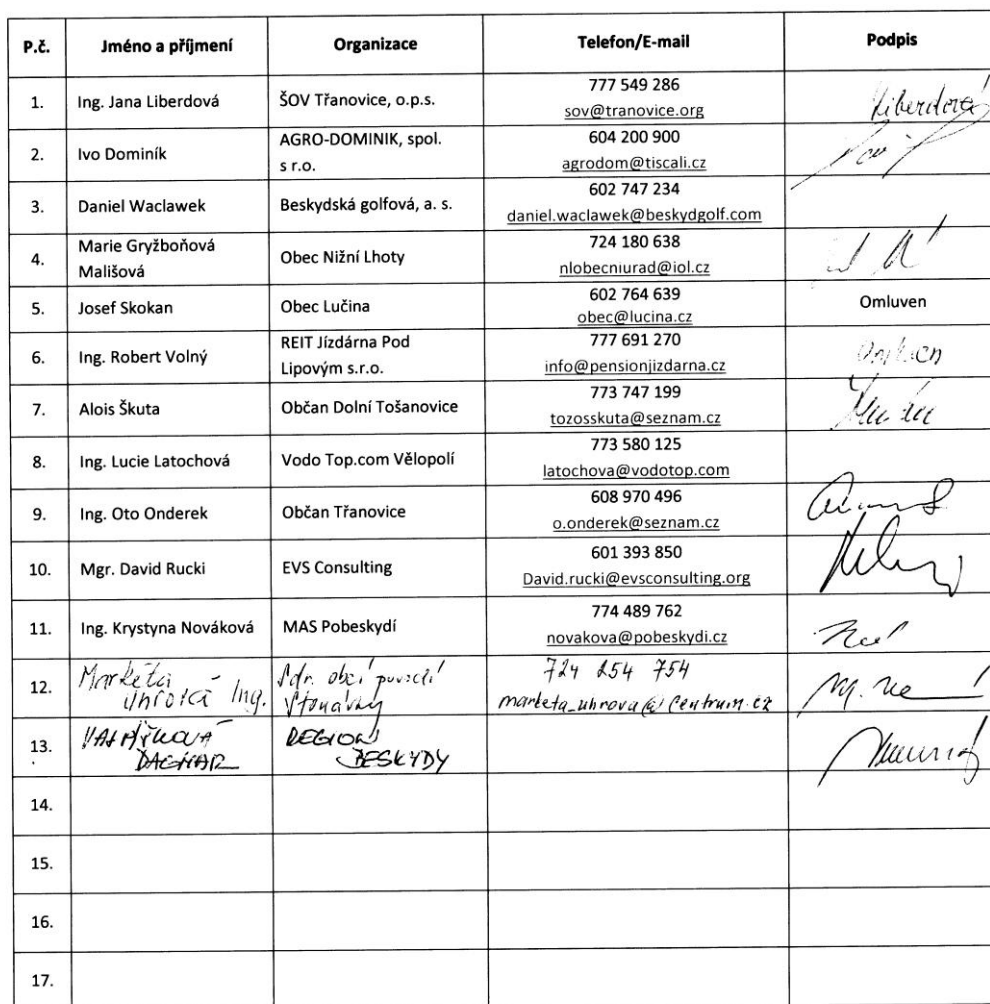 P.č. Jméno a příjmení Organizace Telefon/E-mail Podpis
1. Ing. Jana Liberdová ŠOV Třanovice, o.p.s. 777 549 286
sov@tranovice.org Liberdová
2. Ivo Dominík AGRO-DOMINIK, spol.
s r.o. 604 200 900
agrodom@tiscali.cz
3. Daniel Waclawek Beskydská golfová, a. s. 602 747 234
daniel.waclawek@beskydgolf.com
4. Marie Gryžboňová
Mališová Obec Nižní Lhoty 724 180 638
nlobecniurad@iol.cz
5. Josef Skokan Obec Lučina 602 764 639
obec@lucina.cz Omluven
6. Ing. Robert Volný REIT Jízdárna Pod
Lipovým s.r.o. 777 691 270
info@pensionjizdarna.cz
7. Alois Škuta Občan Dolní Tošanovice 773 747 199
tozosskuta@seznam.cz
8. Ing. Lucie Latochová Vodo Top.com Vělopolí 773 580 125
latochova@vodotop.com
9. Ing. Oto Onderek Občan Třanovice 608 970 496
o.onderek@seznam.cz
10. Mgr. David Rucki EVS Consulting 601 393 850
David.rucki@evsconsulting.org
11. Ing. Krystyna Nováková MAS Pobeskydí 774 489 762
novakova@pobeskydi.cz
12. Markéta
Uhrová Ing. Sdr. obcí povodí
Stonávky 724 254 754
marketa_uhrova@centrum.cz
13. DAGMAR REGION
BESKYDY
14.
15.
16.
17.